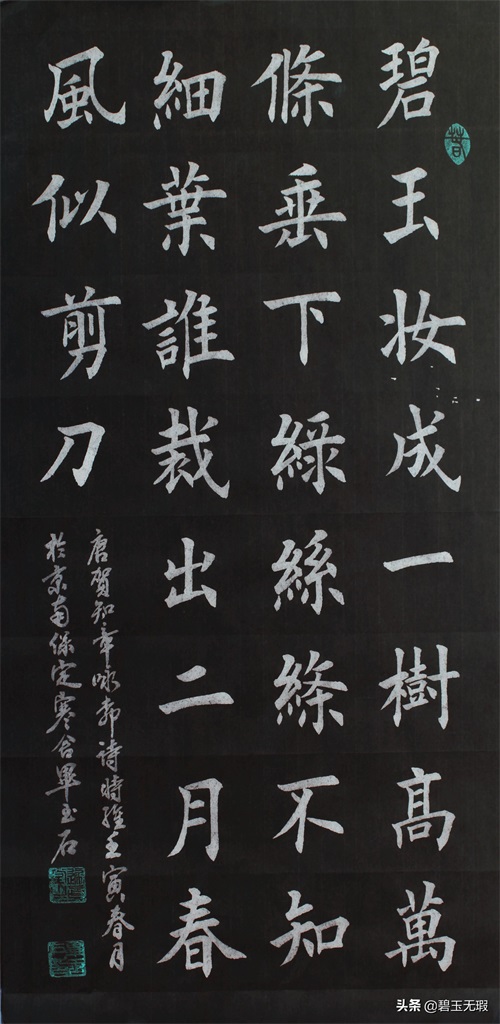 碧玉妆成一樹高萬
條垂下綠絲絛不知
細葉誰裁出二月春
風似剪刀
唐賀知章咏柳诗時維壬寅春月
於京南保定寒舍畢玉石
头条 @碧玉无瑕